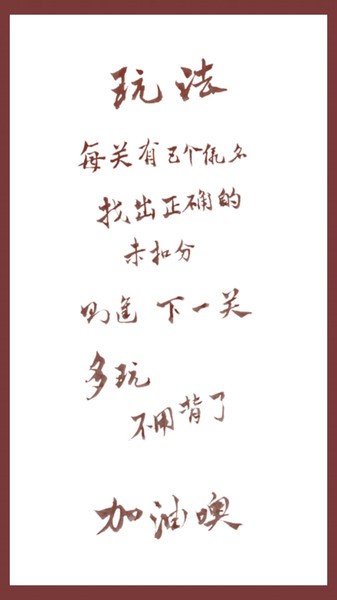 玩法
每关有五个仉名
找出正确的
未扣分
则进下一关
多玩
不用背了
加油噢